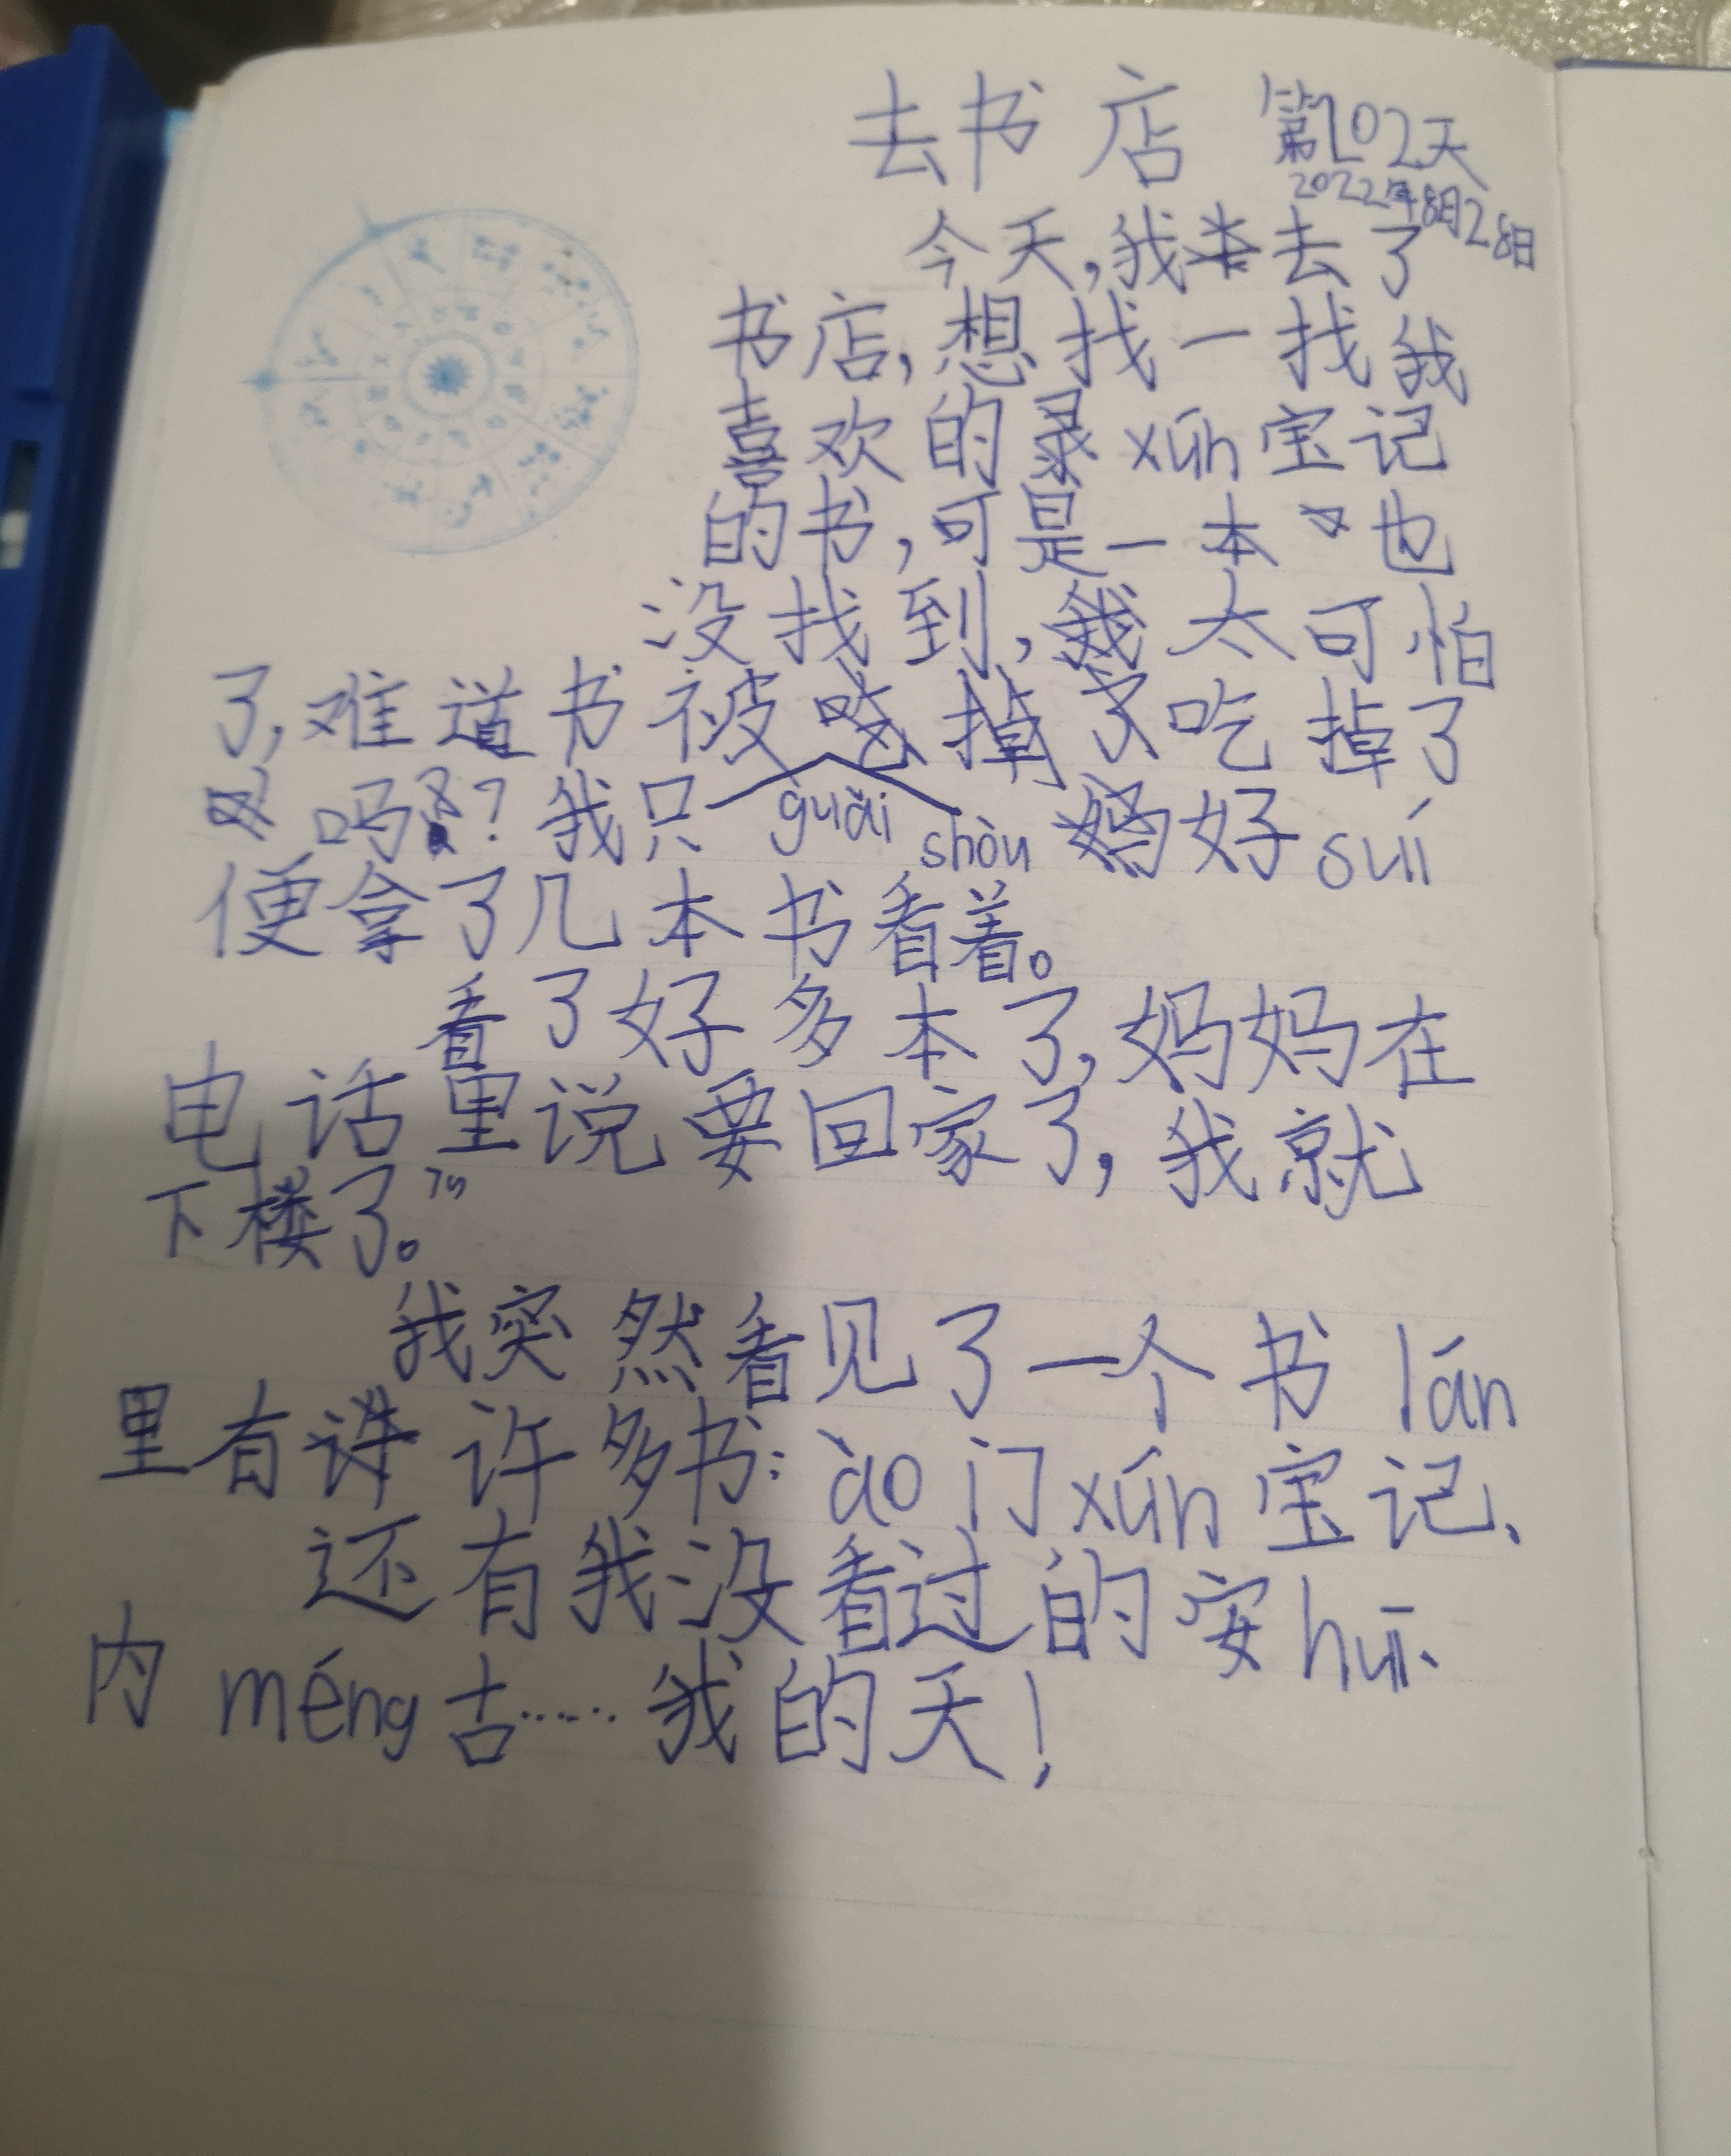 去书店 第102天
2022年8月28日
今天,我去了
书店,想找一找我
喜欢的录xún宝记
的书,可是一本也
没找到,太可怕
了,难道书被guài shòu吃掉了
吗?我只好suí
便拿了几本书看着。
看了好多本了,妈妈在
电话里说要回家了,我就
下楼了。
我突然看见了一个书lán
里有许多书:ào门xún宝记、
还有我没看过的安huī、
内méng古……我的天!